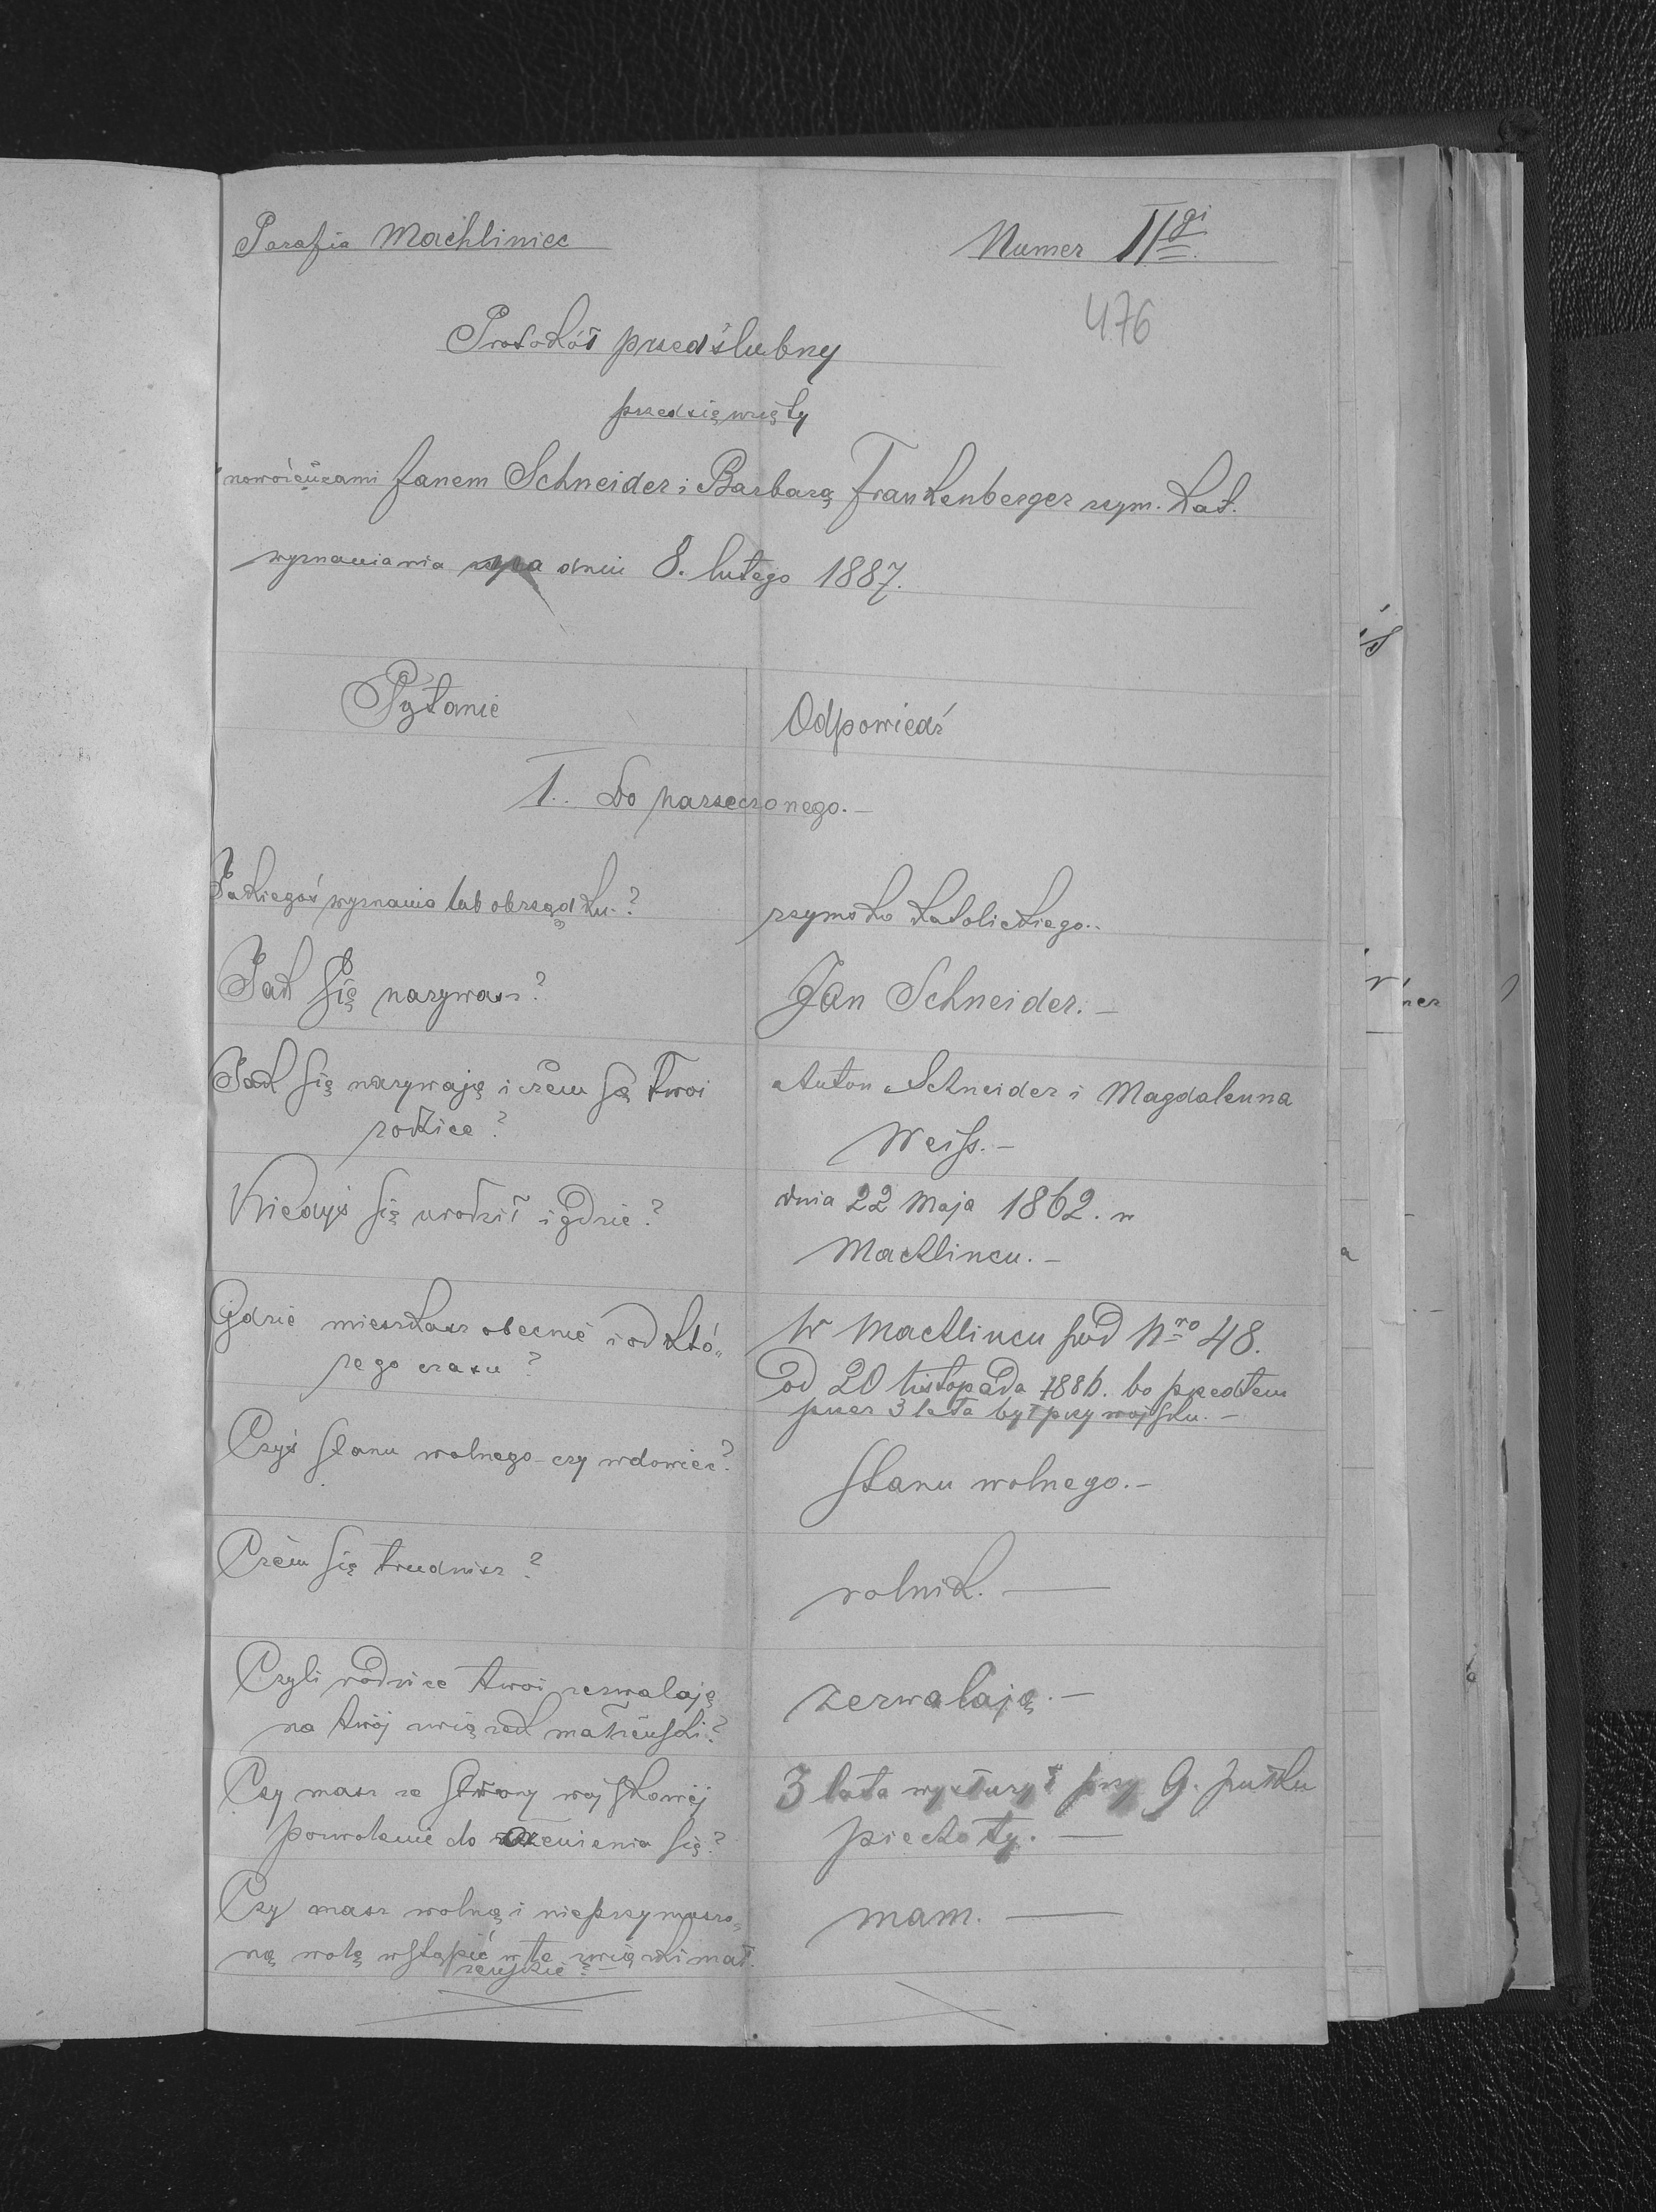 Parafia Machliniec
Numer IIgi
476
Protokół przedślubny
przedsięwzięty
z nowożeńcami Janem Schneider i Barbarą Frankenberger rzym. kat.
wyznawiania dnia 8. lutego 1887.
Pytanie
Odpowiedź
I. Do narzeczonego.–
Jakiegoś wyznania lub obrządku.?
rzymsko katolickiego..
Jak się nazywasz?
Jan Schneider.–
Jak się nazywają i czem są twoi
rodzice?
Anton Schneider i Magdalenna
Weiss.–
Kiedyś się urodził i gdzie?
dnia 22 Maja 1862. w
Machlincu.–
Gdzie mieszkasz obecnie i od któ„
rego czasu?
W Machlincu pod Nro 48.
od 20 listopada 1886. bo przedtem
przez 3 lata był przy wojsku.–
Czyś stanu wolnego czy wdowiec?
stanu wolnego.–
Czem się trudnisz?
rolnik.—
Czyli rodzice twoi zezwalają
na twój związek małżeński?
zezwalają.–
Czy masz ze strony wojskowej
pozwolenie do ożenienia się?
3 lata wysłużył przy 9. pułku
piechoty.—
Czy masz wolną i nieprzymuszo„
ną wolę wstąpić w te związki mał.
żeńskie?–
mam.—